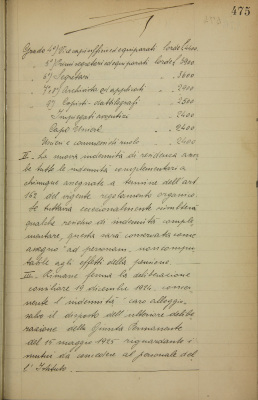 475
Grado 4°) Vice capi ufficio ed equiparati lorde £ 4200.
" 5°) Primi segretari ed equiparati lorde £ 3900.
" 6°) Segretari " 3600
" 7° e 8°) Archivista ed applicati " 2400
" 9°) Copisti-dattilografi " 2500
Impiegati avventizi " 2400
Capo Uscieri " 2400
Uscieri e commessi di ruolo " 2400
II.- La nuova indennità di residenza assor
be tutte le indennità complementari a
chiunque assegnate a termine dell'art
162 del vigente regolamento organico.
Se tuttavia eccezionalmente risulterà
qualche residuo di indennità comple
mentare, questa sarà conservata come
assegno "ad personam, non compu
tabile agli effetti della pensione.
III.- Rimane ferma la deliberazione
consiliare 19 dicembre 1924, concer
nente l'indennità caro alloggi,
salvo il disposto dell'ulteriore delibe
razione della Giunta Permanente
del 15 maggio 1925 riguardante i
mutui da concedere al personale del
l'Istituto.